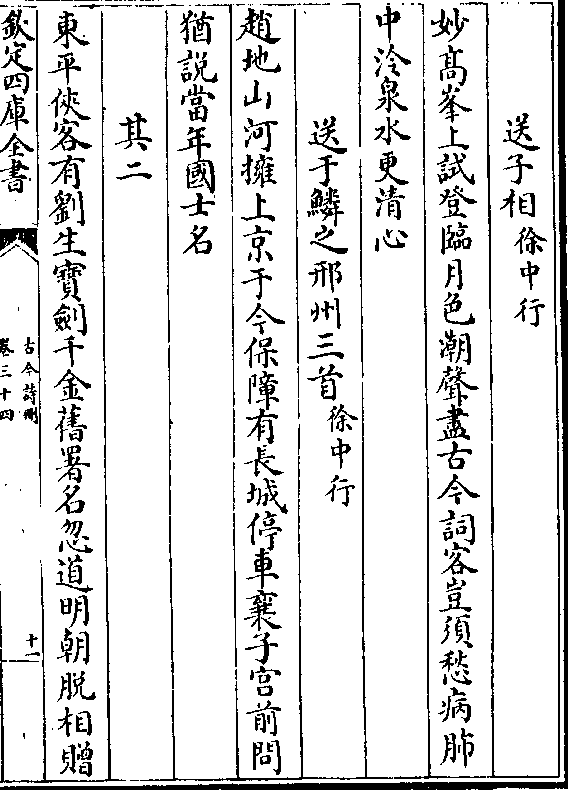 送子相徐中行
妙髙峯上試登臨月色潮聲盡古今詞客豈須愁病肺
中泠泉水更清心
送于鱗之邢州三首徐中行
趙地山河擁上京于今保障有長城停車襄子宫前問
猶説當年國士名
其二
東平俠客有劉生寶劍千金舊署名忽道明朝脱相贈
欽定四庫全書
古今詩刪
卷三十四
十一